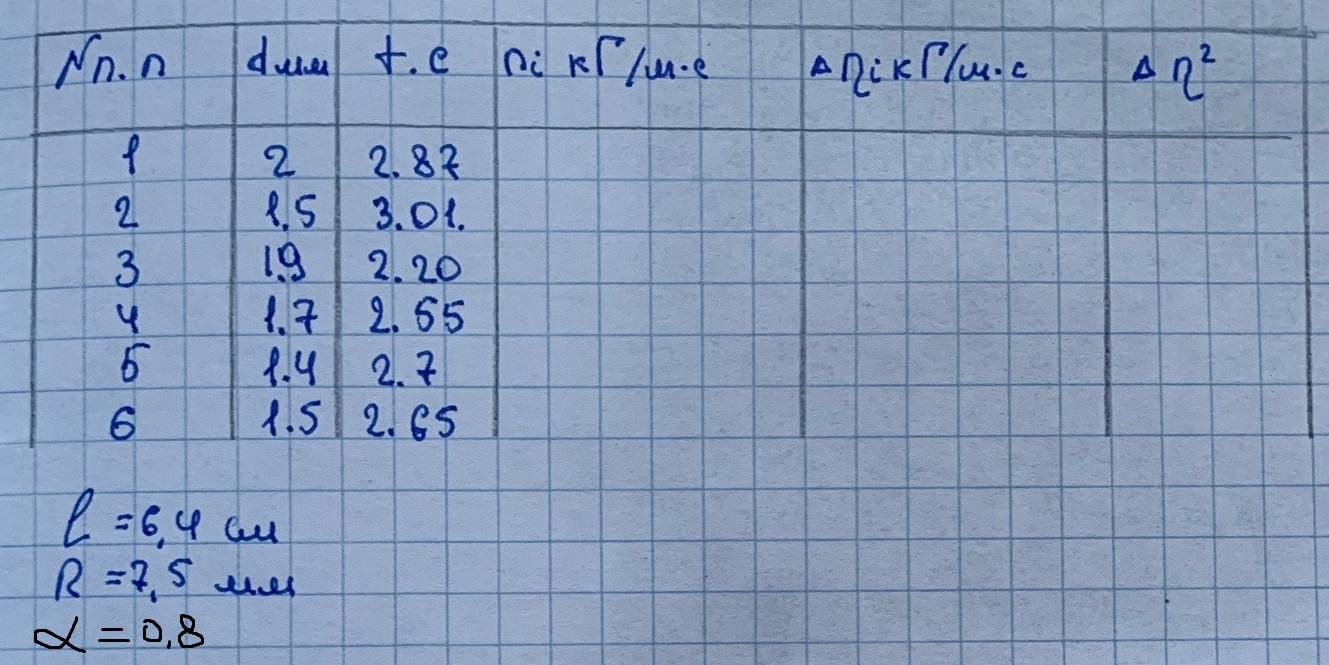 Nп.п dмм t.c ηi кГ/м·с Δηi кГ/м·с Δη²
1 2 2.87
2 1.5 3.01.
3 1.9 2.20
4 1.7 2.55
5 1.4 2.7
6 1.5 2.65
l = 6,4 см
R = 7,5 мм
α = 0,8